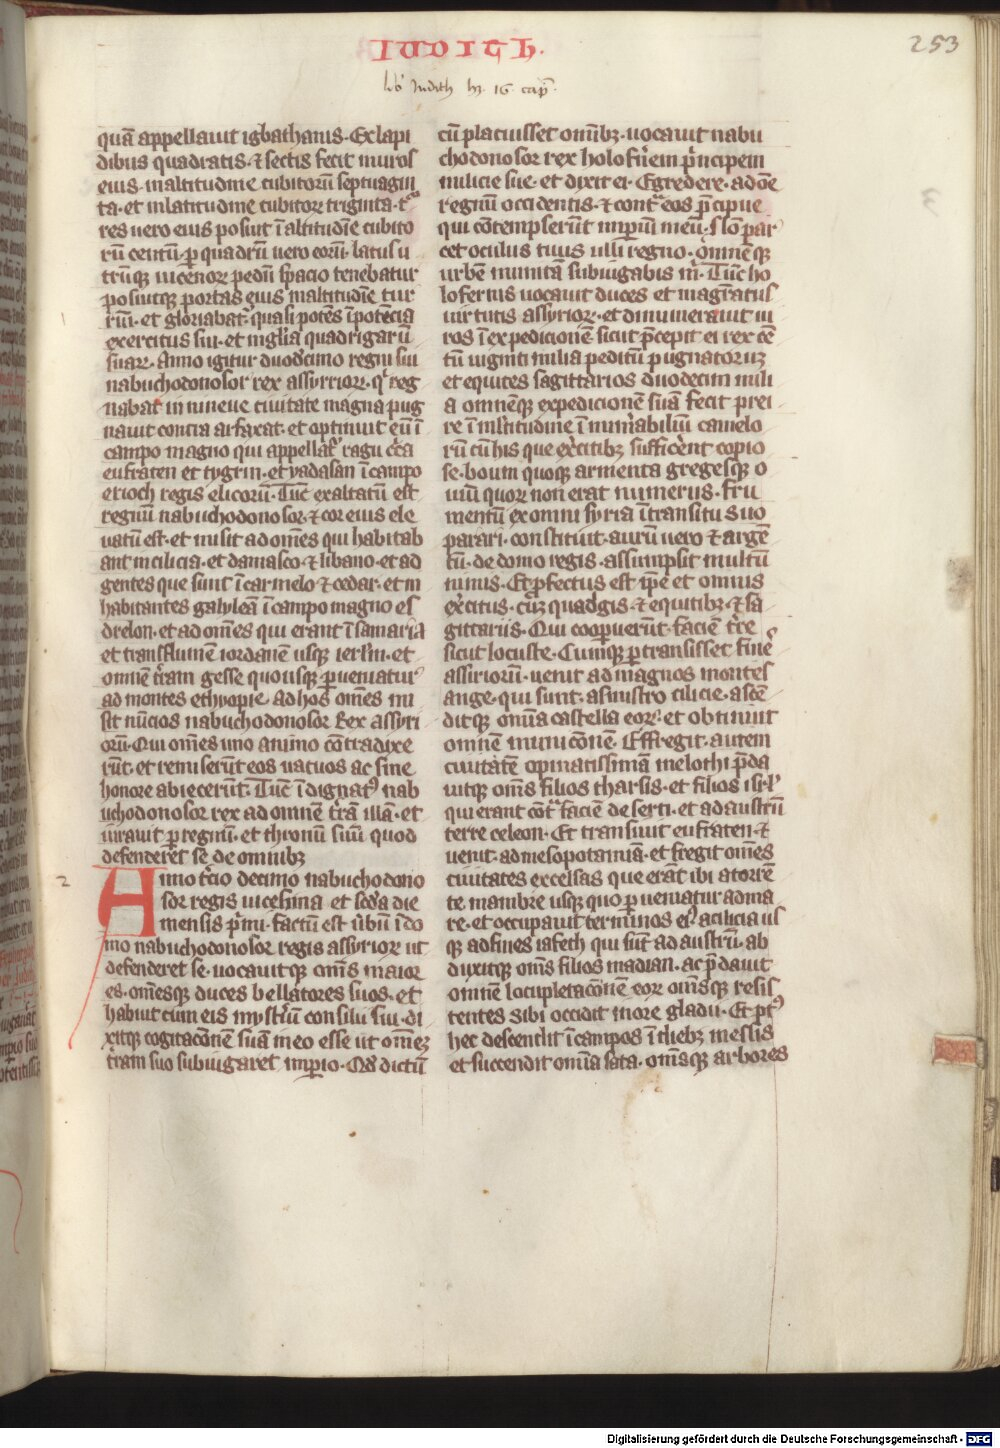 IUDITH.
253
lib' Judith hȝ 16 cap̄.
quā appellauit igbathanis. Ex lapi
dibus quadratis. ⁊ sectis fecit muros
eius. in altitudine cubitorū septuagin
ta. et in latitudine cubitorꝝ triginta. t᷑
res uero eius posuit ī altitudīe cubito
rū centū. ꝑ quadrū uero eorū. latus u
trūqꝫ uicenorꝝ pedū spacio tenebatur
posuitqꝫ portas eius in altitudīe tur
riū. et gloriabat᷑. quasi potēs ī potēcia
exercitus sui. et in gl'ia quadrigarū
suarꝝ. Anno igitur duodecimo regni sui
nabuchodonosor rex assyriorꝝ. q' reg
nabat in niniue ciuitate magna pug
nauit contra arfaxat. et optinuit eū ī
campo magno qui appellat᷑ ragu c'ca
eufraten et tygrin. et yadasan ī campo
erioch regis elicorū. Tūc exaltatū est
regnū nabuchodonosor. ⁊ cor eius ele
uatū est. et misit ad om̄es qui habitab
ant in cilicia. et damasco ⁊ libano. et ad
gentes que sunt ī carmelo ⁊ cedar. et in
habitantes galyleā ī campo magno es
drelon. et ad om̄es qui erant ī samaria
et trans flumē iordanē usqꝫ ierl'm. et
omnē t'ram gesse quousqꝫ ꝑueniatur
ad montes ethyopie. ad hos om̄es mi
sit nūcios nabuchodonosor Rex assyri
orū. Qui om̄es uno animo cōtradixe
rūt. et remiserūt eos uacuos ac sine
honore abiecerūt. Tūc īdignat' nab
uchodonosor rex ad omnē t'rā illā. et
iurauit ꝑ regnū. et thronū suū quod
defenderet se de omnibꝫ
2
Anno t'cio decimo nabuchodono
sor regis uicesima et sc'da die
mensis p'mi. factū est u'bū ī do
mo nabuchodonosor regis assyriorꝝ ut
defenderet se. uocauitqꝫ om̄s maior
es. om̄esqꝫ duces bellatores suos. et
habuit cum eis myst'iū consilii sui. di
xitqꝫ cogitacōnē suā in eo esse ut om̄eȝ
t'ram suo subiugaret imꝑio. Qd' dictū
cū placuisset omībꝫ. uocauit nabu
chodonosor rex holofn'em p'ncipem
milicie sue. et dixit ei. Egredere. ad om̄e
regnū occidentis. ⁊ cont' eos p'cipue
qui cōtempserūt imꝑiū meū. Nō par
cet oculus tuus ulli regno. omnēqꝫ
urbē munitā subiugabis m'. Tūc ho
lofernis uocauit duces et mag'ratus
uirtutis assyriorꝝ. et dinumerauit ui
ros ī expedicionē sicut p'cepit ei rex cē
tū uiginti milia peditū pugnatorum
et equites sagittarios duodecim mili
a omnēqꝫ expedicionē suā fecit prei
re ī ml'titudine ī nūm'abiliū camelo
rū cū his que ex'citibꝫ suffic'ent copio
se. boum quoqꝫ armenta gregesqꝫ o
uiū quorꝝ non erat numerus. fru
mentū ex omni syria ī transitu suo
parari. constituit. aurū uero ⁊ argē
tū. de domo regis. assumpsit multū
nimis. Et ꝓfectus est ip̄e et omnis
ex'citus. cum quad'gis. ⁊ equitibꝫ. ⁊ sa
gittariis. Qui cooꝑuerūt. faciē t're
sicut locuste. Cumqꝫ ꝑtransisset fines
assiriorū. uenit ad magnos montes
ange. qui sunt. a sinistro cilicie. ascē
ditqꝫ omīa castella eorꝝ. et obtinuit
omnē municōnē. Effregit. autem
ciuitatē opinatissimā melothi p'da
uitqꝫ om̄s filios tharsis. et filios isrl'
qui erant cōt' faciē deserti. et ad austrū
terre celeon. Et transiuit eufraten. ⁊
uenit. ad mesopotamiā. et fregit om̄es
ciuitates excelsas que erāt ibi a torrē
te. mambre usqꝫ quo ꝑueniatur ad ma
re. et occupauit terminos ei' a cilicia us
qꝫ ad fines iafeth qui sūt ad austrū. ab
duxitqꝫ om̄s filios madian. ac p'dauit
omnē locupletacōnē eorꝝ om̄sqꝫ resis
tentes sibi occidit in ore gladii. Et pt'
hec descendit ī campos ī diebꝫ messis
et succendit omīa sata. om̄sqꝫ arbores
Digitalisierung gefördert durch die Deutsche Forschungsgemeinschaft - DFG